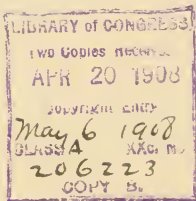 LIBRARY of CONGRESS
Two Copies Received
APR 20 1908
Copyright Entry
May 6 1908
CLASS A XXc. No.
206223
COPY B.